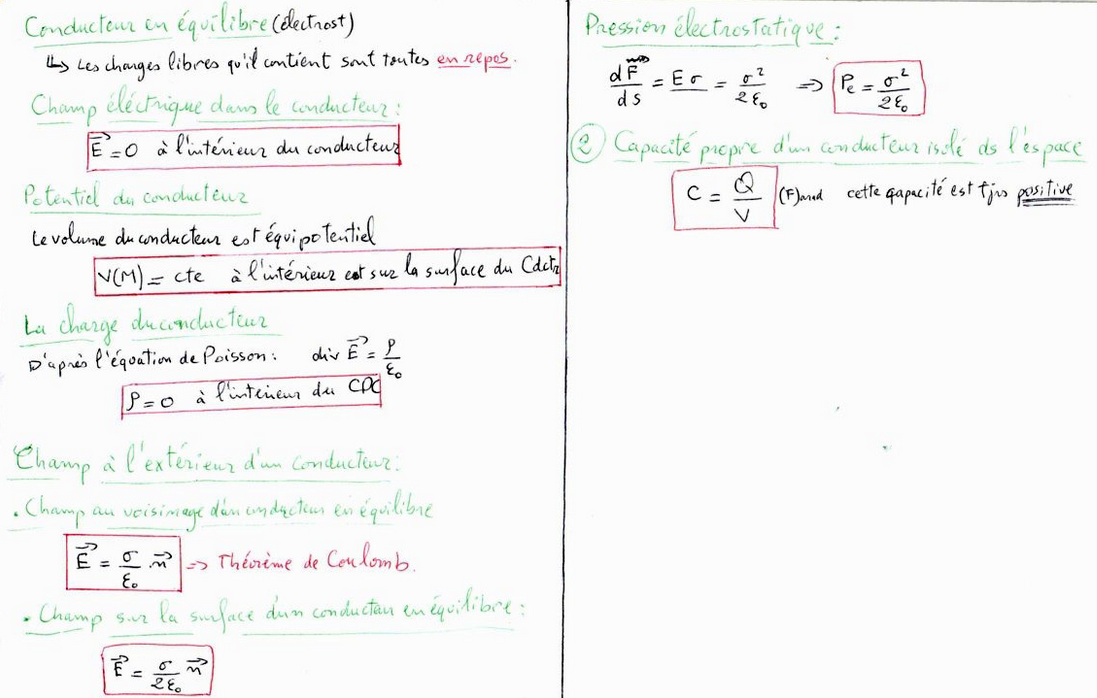 Conducteur en équilibre (électrost)
↳ Les charges libres qu'il contient sont toutes en repos.
Champ éléctrique dans le conducteur :
E⃗ = 0 à l'intérieur du conducteur
Potentiel du conducteur
Le volume du conducteur est équipotentiel
V(M) = cte à l'intérieur et sur la surface du Cdctr
La charge du conducteur
D'après l'équation de Poisson : div E⃗ = ρ/ε₀
ρ = 0 à l'interieur du CDC
Champ à l'extérieur d'un conducteur :
• Champ au voisinage d'un conducteur en équilibre
E⃗ = σ/ε₀ . n⃗ => Théorème de Coulomb.
• Champ sur la surface d'un conducteur en équilibre :
E⃗ = σ/2ε₀ n⃗
Pression électrostatique :
dF⃗/ds = E σ = σ²/2ε₀ => Pe = σ²/2ε₀
② Capacité propre d'un conducteur isolé ds l'éspace
C = Q/V (F)arad cette capacité est tjrs positive